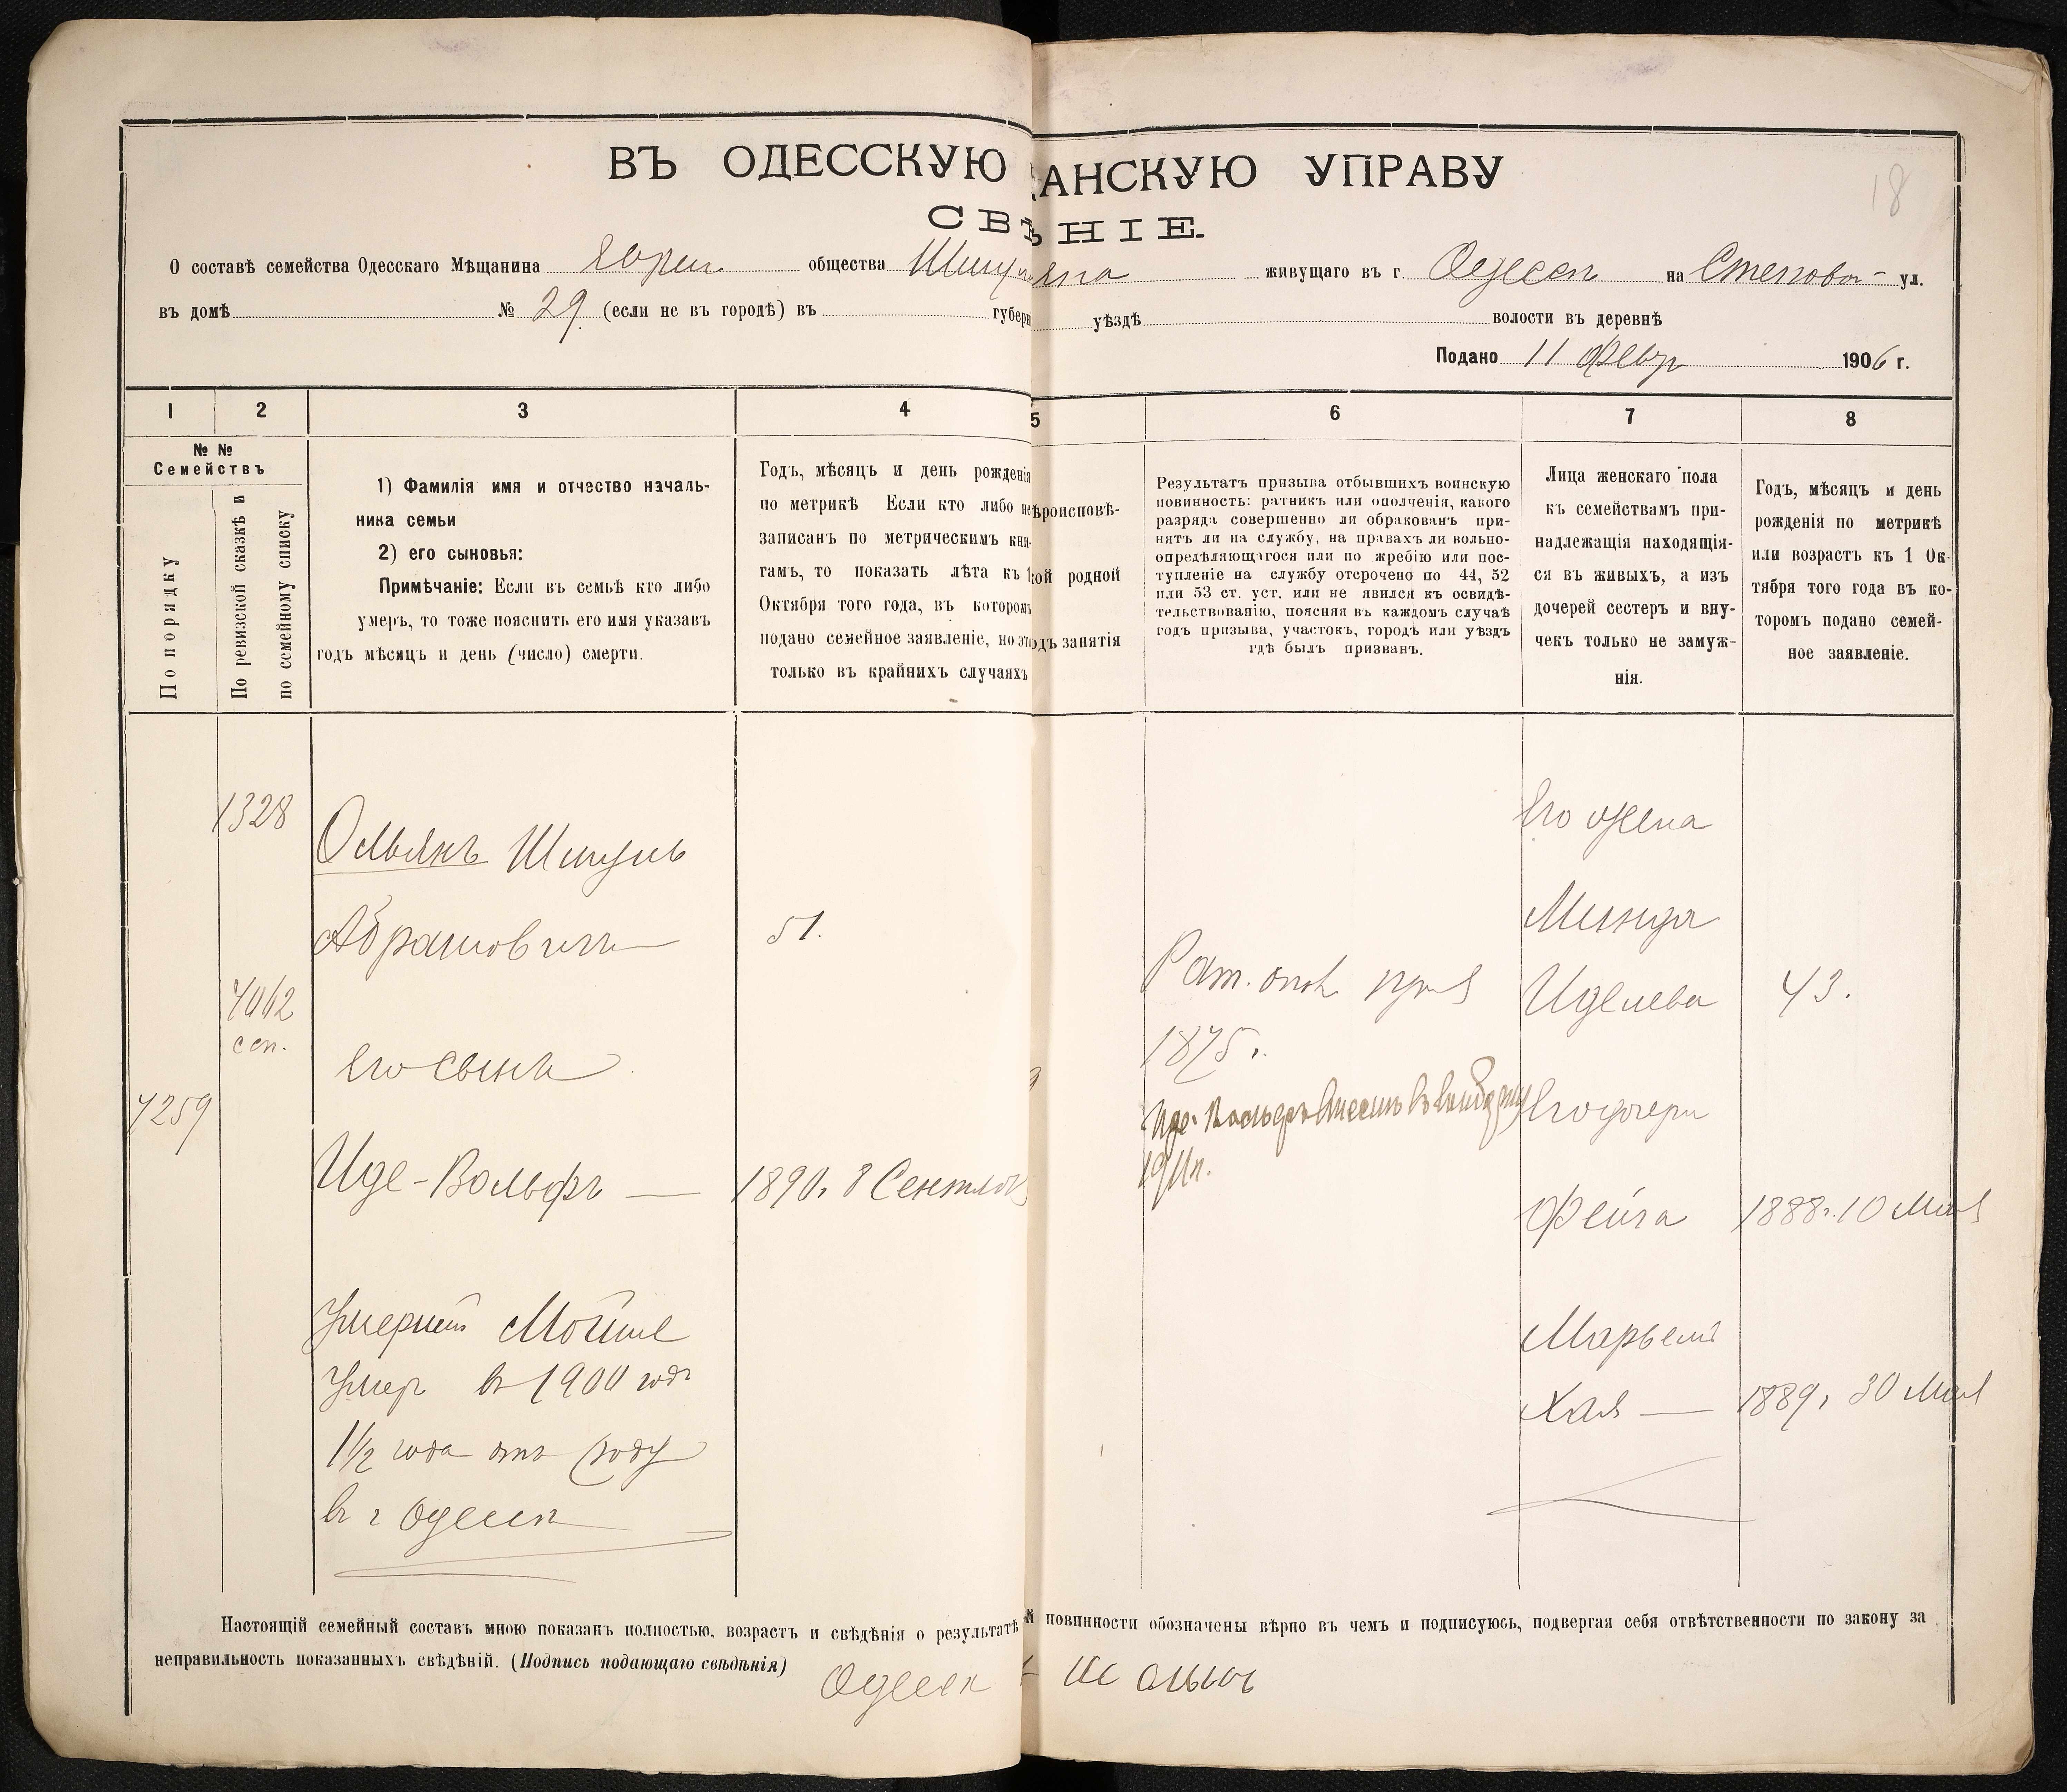 ВЪ ОДЕССКУЮ АНСКУЮ УПРАВУ
СВ НІЕ.
18
О составѣ семейства Одесскаго Мѣщанина общества живущаго въ г. Одессѣ на Степовой ул.
въ домѣ № 29 (если не въ городѣ) въ губерн уѣздѣ волости въ деревнѣ
Подано 11 Февр 1906 г.
1 2 3 4 5 6 7 8
№ №
Семействъ
По порядку
По ревизской сказкѣ и
по семейному списку
1) Фамилія имя и отчество началь-
ника семьи
2) его сыновья:
Примѣчаніе: Если въ семьѣ кто либо
умеръ, то тоже пояснить его имя указавъ
годъ мѣсяцъ и день (число) смерти.
Годъ, мѣсяцъ и день рожденія
по метрикѣ Если кто либо не
записанъ по метрическимъ кни-
гамъ, то показать лѣта къ 1
Октября того года, въ которомъ
подано семейное заявленіе, но это
только въ крайнихъ случаяхъ
ѣроисповѣ-
кой родной
одъ занятія
Результатъ призыва отбывшихъ воинскую
повинность: ратникъ или ополченія, какого
разряда совершенно ли обракованъ при-
нятъ ли на службу, на правахъ ли вольно-
опредѣляющагося или по жребію или пос-
тупленіе на службу отсрочено по 44, 52
или 53 ст. уст. или не явился къ освидѣ-
тельствованію, поясняя въ каждомъ случаѣ
годъ призыва, участокъ, городъ или уѣздъ
гдѣ былъ призванъ.
Лица женскаго пола
къ семействамъ при-
надлежащія находящія-
ся въ живыхъ, а изъ
дочерей сестеръ и вну-
чекъ только не замуж-
нія.
Годъ, мѣсяцъ и день
рожденія по метрикѣ
или возрастъ къ 1 Ок-
тября того года въ ко-
торомъ подано семей-
ное заявленіе.
1328
Ольякъ Шмуль
Абрамовичъ —
51.
7062
сем.
Его сынъ
7259
Иде-Вольфъ — 1890г 8 Сентяб
Умершій Мойше
Умер въ 1900 годѣ
1½ года отъ роду
въ г Одессѣ
Рат. опол
1875 г.
Иде-Вольфъ внесенъ въ
1911г.
Его жена
Минця
Иделева 43.
Его дочери
Фейга 1888г. 10 Мая
Марьемъ
Хая — 1889г 30 Мая
Настоящій семейный составъ мною показанъ полностью, возрастъ и свѣдѣнія о результатѣ й повинности обозначены вѣрно въ чемъ и подписуюсь, подвергая себя отвѣтственности по закону за
неправильность показанныхъ свѣдѣній. (Подпись подающаго свѣдѣнія)